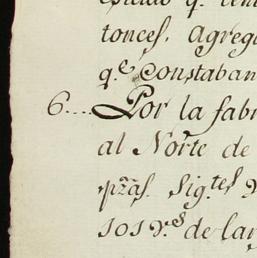 q.e ten
tonces, Agreg
q.e Constaban
6.... Por la fab
al Norte de
pzās. Sig.tes y
sos v.s de lar